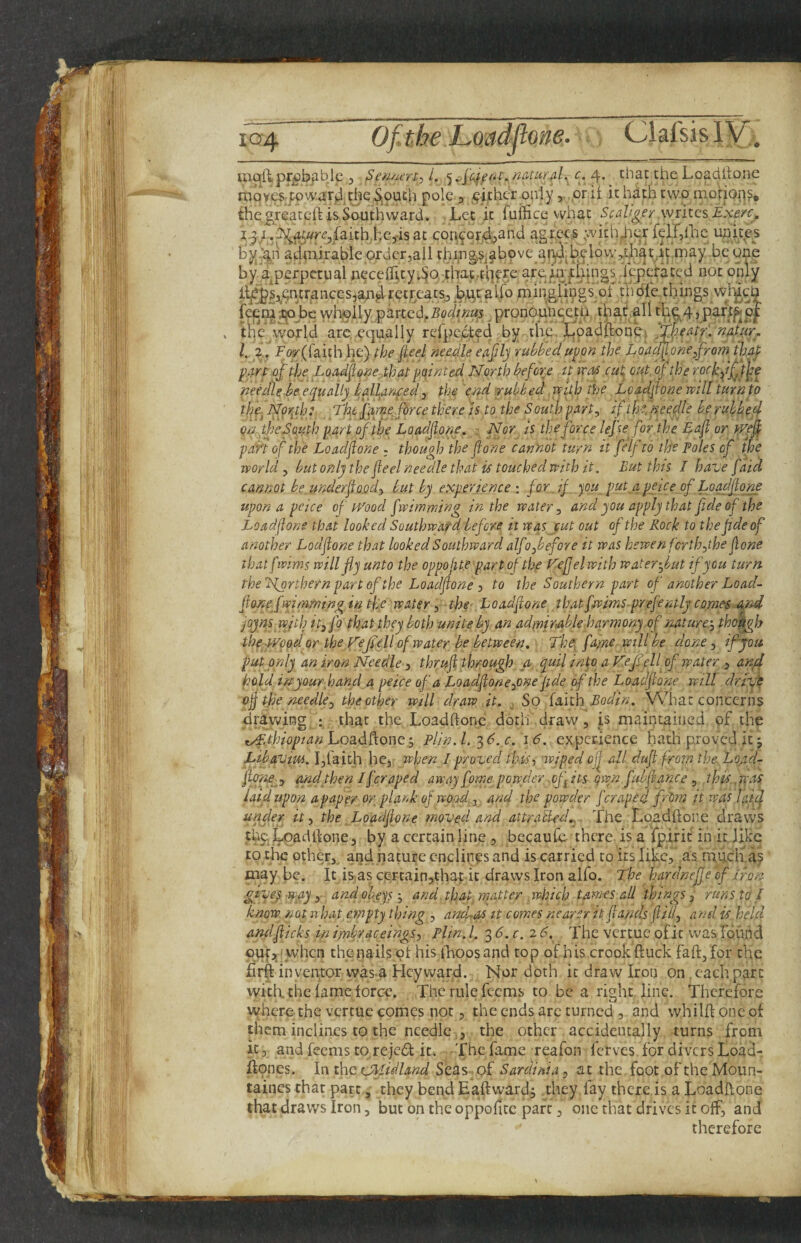 104 Of the Loadſtone. Claſsis IV.
moſt probable, Sennert, l. 5. ſcient. natural. c. 4. that the Loadſtone
moves toward the South pole, either only, or if it hath two motions,
the greateſt is Southward. Let it ſuffice what Scaliger writes Exerc.
131. Nature, ſaith he, is at concord, and agrees with her ſelf, ſhe unites
by an admirable order, all things above and below, that it may be one
by a perpetual neceſſity. So that there are in things ſeperated not only
ſteps, entrances, and retreats, but alſo minglings of thoſe things which
ſeem to be wholly parted. Bodinus pronounceth that all the 4, parts of
the world are equally reſpected by the Loadſtone, Theatr. natur.
l. 2. For (ſaith he) the ſteel needle eaſily rubbed upon the Loadſtone, from that
part of the Loadſtone that pointed North before it was cut out of the rock, if the
needle be equally ballanced, the end rubbed with the Loadſtone will turn to
the North: The ſame force there is to the South part, if the needle be rubbed
on the South part of the Loadſtone. Nor is the force leſſe for the Eaſt or Weſt
part of the Loadſtone: though the ſtone cannot turn it ſelf to the Poles of the
world, but only the ſteel needle that is touched with it. But this I have ſaid
cannot be underſtood, but by experience: for if you put a peice of Loadſtone
upon a peice of Wood ſwimming in the water, and you apply that ſide of the
Loadſtone that looked Southward before it was cut out of the Rock to the ſide of
another Lodſtone that looked Southward alſo, before it was hewen forth, the ſtone
that ſwims will fly unto the oppoſite part of the Veſſel with water; but if you turn
the Northern part of the Loadſtone, to the Southern part of another Load-
ſtone ſwimming in the water, the Loadſtone that ſwims preſently comes and
joyns with it, ſo that they both unite by an admirable harmony of nature; though
the Wood or the Veſſell of water be between. The ſame will be done, if you
put only an iron Needle, thruſt through a quil into a Veſſell of water, and
hold in your hand a peice of a Loadſtone, one ſide of the Loadſtone will drive
off the needle, the other will draw it. So ſaith Bodin. What concerns
drawing: that the Loadſtone doth draw, is maintained of the
Æthiopian Loadſtone; Plin. l. 36. c. 16. experience hath proved it;
Libavius. I, ſaith he, when I proved this, wiped off all duſt from the Load-
ſtone, and then I ſcraped away ſome powder of its own ſubſtance, this was
laid upon a paper or plank of wood, and the powder ſcraped from it was laid
under it, the Loadſtone moved and attracted. The Loadſtone draws
the Loadſtone, by a certain line, becauſe there is a ſpirit in it like
to the other, and nature enclines and is carried to its like, as much as
may be. It is as certain, that it draws Iron alſo. The hardneſſe of iron
gives way, and obeys; and that matter which tames all things, runs to I
know not what empty thing, and as it comes nearer it ſtands ſtill, and is held
and ſticks in imbraceings, Plin. l. 36. c. 26. The vertue of it was found
out, when the nails of his ſhoos and top of his crook ſtuck faſt, for the
firſt inventor was a Heyward. Nor doth it draw Iron on each part
with the ſame force. The rule ſeems to be a right line. Therefore
where the vertue comes not, the ends are turned, and whilſt one of
them inclines to the needle, the other accidentally turns from
it, and ſeems to reject it. The ſame reaſon ſerves for divers Load-
ſtones. In the Midland Seas of Sardinia, at the foot of the Moun-
taines that part, they bend Eaſtward; they ſay there is a Loadſtone
that draws Iron, but on the oppoſite part, one that drives it off, and
therefore